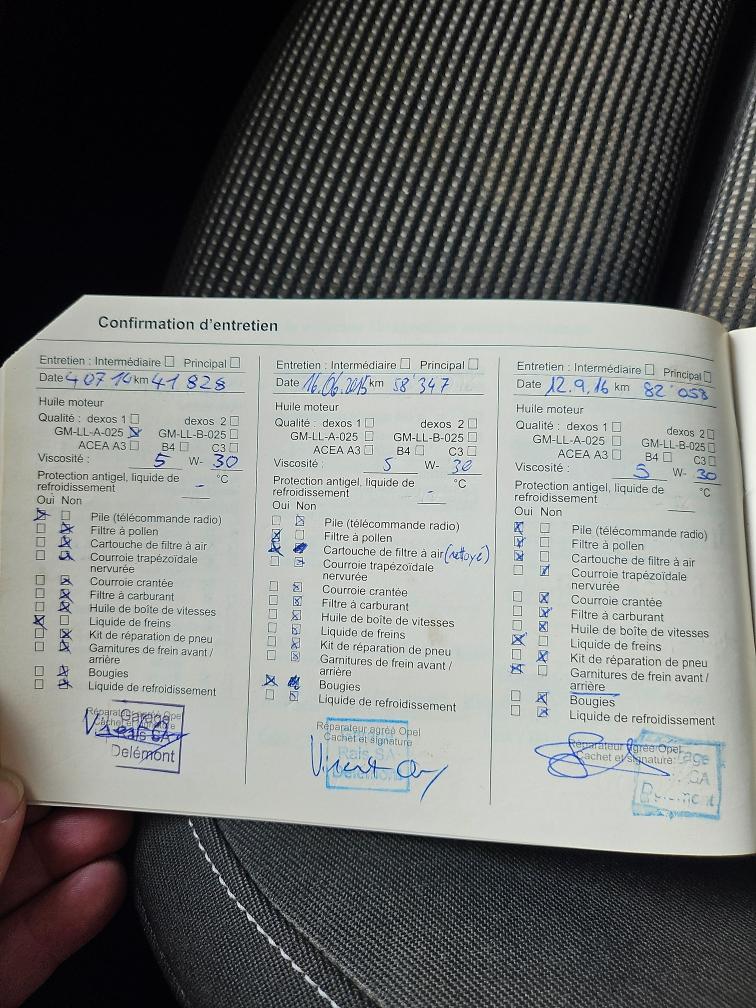 Confirmation d'entretien
Entretien : Intermédiaire Principal
Date 4 07 14 km 41 828
Huile moteur
Qualité : dexos 1 dexos 2
GM-LL-A-025 GM-LL-B-025
ACEA A3 B4 C3
Viscosité : 5 W- 30
Protection antigel, liquide de
refroidissement - °C
Oui Non
Pile (télécommande radio)
Filtre à pollen
Cartouche de filtre à air
Courroie trapézoïdale
nervurée
Courroie crantée
Filtre à carburant
Huile de boîte de vitesses
Liquide de freins
Kit de réparation de pneu
Garnitures de frein avant /
arrière
Bougies
Liquide de refroidissement
Réparateur agréé Opel
Cachet et signature
Garage
Rais SA
Delémont
Entretien : Intermédiaire Principal
Date 16.06.2015 km 58'347
Huile moteur
Qualité : dexos 1 dexos 2
GM-LL-A-025 GM-LL-B-025
ACEA A3 B4 C3
Viscosité : 5 W- 30
Protection antigel, liquide de
refroidissement - °C
Oui Non
Pile (télécommande radio)
Filtre à pollen
Cartouche de filtre à air (nettoyé)
Courroie trapézoïdale
nervurée
Courroie crantée
Filtre à carburant
Huile de boîte de vitesses
Liquide de freins
Kit de réparation de pneu
Garnitures de frein avant /
arrière
Bougies
Liquide de refroidissement
Réparateur agréé Opel
Cachet et signature
Rais SA
Delémont
Entretien : Intermédiaire Principal
Date 12.9.16 km 82'058
Huile moteur
Qualité : dexos 1 dexos 2
GM-LL-A-025 GM-LL-B-025
ACEA A3 B4 C3
Viscosité : 5 W- 30
Protection antigel, liquide de
refroidissement °C
Oui Non
Pile (télécommande radio)
Filtre à pollen
Cartouche de filtre à air
Courroie trapézoïdale
nervurée
Courroie crantée
Filtre à carburant
Huile de boîte de vitesses
Liquide de freins
Kit de réparation de pneu
Garnitures de frein avant /
arrière
Bougies
Liquide de refroidissement
Réparateur agréé Opel
Cachet et signature
Garage
SA
Delémont